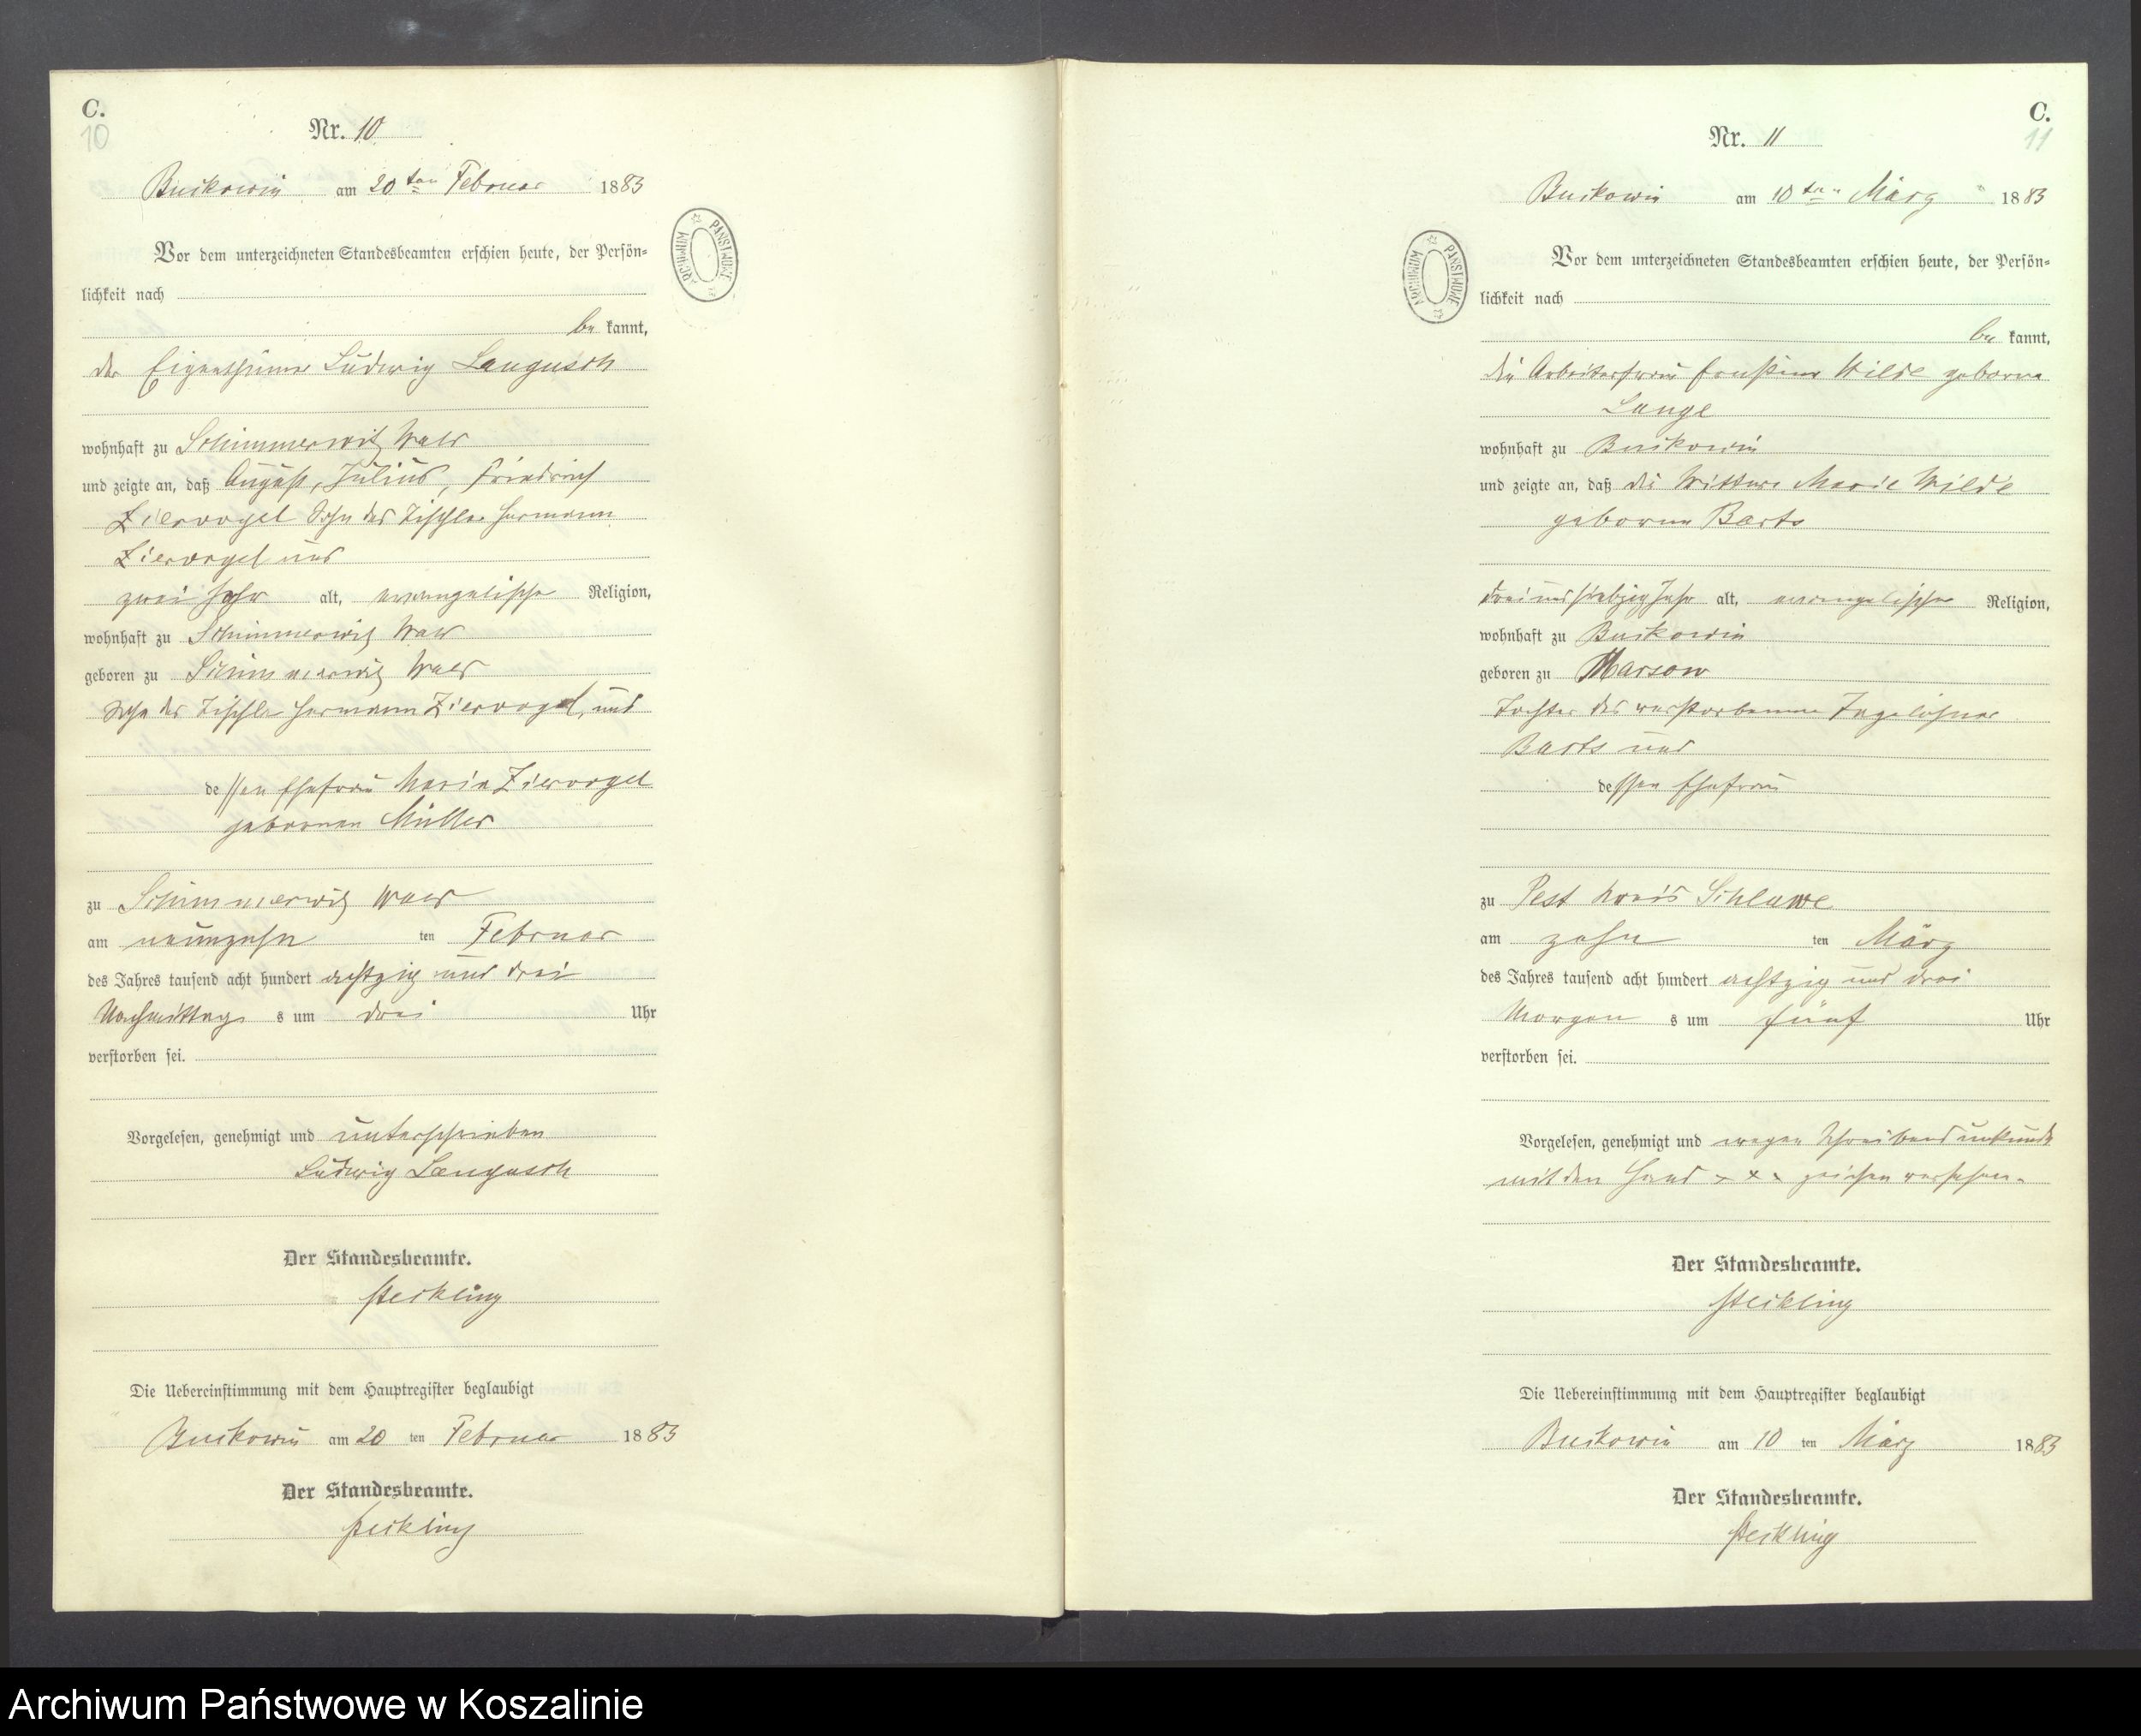 C.
10
Nr. 10
Buckowin am 20ten Februar 1883
ARCHIWUM PAŃSTWOWE
Vor dem unterzeichneten Standesbeamten erschien heute, der Persön=
lichkeit nach
be kannt,
der Eigenthümer Ludwig Langusch
wohnhaft zu Schimmerwitz Wald
und zeigte an, daß August, Julius, Friedrich
Ziervogel Sohn des Tischler Hermann
Ziervogel und
zwei Jahr alt, evangelischer Religion,
wohnhaft zu Schimmerwitz Wald
geboren zu Schimmerwitz Wald
Sohn des Tischler Hermann Ziervogel, und
dessen Ehefrau Maria Ziervogel
geborenen Müller
zu Schimmerwitz Wald
am neunzehn ten Februar
des Jahres tausend acht hundert achtzig und drei
Nachmittag s um drei Uhr
verstorben sei.
Vorgelesen, genehmigt und unterschrieben
Ludwig Langusch
Der Standesbeamte.
Steckling
Die Uebereinstimmung mit dem Hauptregister beglaubigt
Buckowin am 20 ten Februar 1883
Der Standesbeamte.
Steckling
C.
11
Nr. 11
Buckowin am 10ten März 1883
ARCHIWUM PAŃSTWOWE
Vor dem unterzeichneten Standesbeamten erschien heute, der Persön=
lichkeit nach
be kannt,
die Arbeiterfrau Ernstine Wilde geborne
Lange
wohnhaft zu Buckowin
und zeigte an, daß die Wittwe Marie Wilde
geborne Barts
drei und siebzig Jahr alt, evangelischer Religion,
wohnhaft zu Buckowin
geboren zu Marsow
Tochter des verstorbenen Tagelöhner
Barts und
dessen Ehefrau
zu Pest Kreis Schlawe
am zehn ten März
des Jahres tausend acht hundert achtzig und drei
Morgen s um fünf Uhr
verstorben sei.
Vorgelesen, genehmigt und wegen Schreibens unkunde
mit den Hand x x x zeichen versehen.
Der Standesbeamte.
Steckling
Die Uebereinstimmung mit dem Hauptregister beglaubigt
Buckowin am 10 ten März 1883
Der Standesbeamte.
Steckling
Archiwum Państwowe w Koszalinie